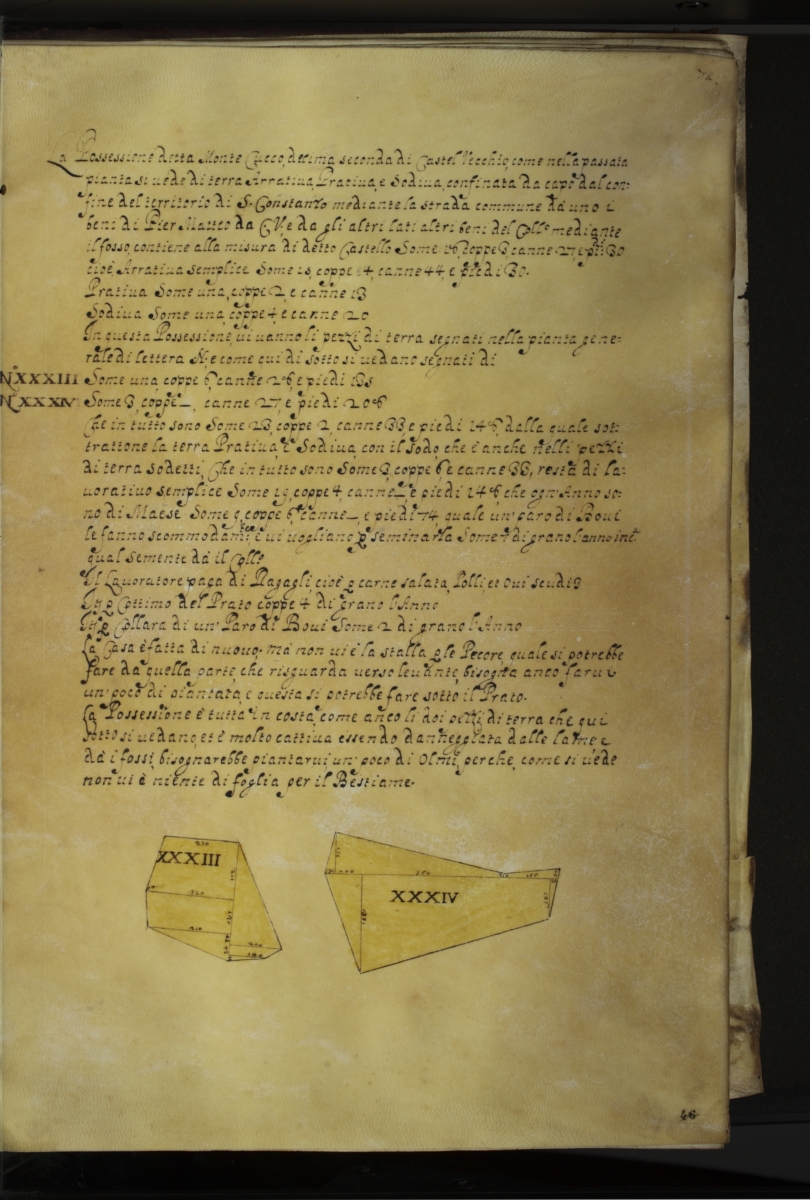 La Possessione detta Monte Cucco, decima seconda di Castel Vecchio, come nella passata
pianta si uede di terra Arratiua, Pratiua, e Sodiua, confinata da capo dal con:
fine del territorio di S. Constanzo mediante la strada commune da uno i
beni di Pier Matteo da e da gli altri lati altri beni del Coll.o mediante
il fosso, contiene alla misura di detto Castello Some coppe 3 canne 27 e piedi 30
cioè, Arratiua semplice Some coppe 4, canne 44, e piedi 30.
Pratiua Some una, coppe 2, e canne 13
Sodiua Some una, coppe 4 e canne 20
In questa Possessione, ui uanno li pezzi di terra segnati nella pianta gene:
rale di lettera N, e come qui di sotto si uedano segnati di
N.o XXXIII Some una coppe 6 canne 26 e piedi
N.o XXXIV Some 3, coppe _, canne 27 e piedi 206
Che in tutto sono Some 23, coppe 2, canne 33 e piedi 246, dalla quale sot:
trattone la terra Pratiua, e Sodiua, con il sodo, che è anche nelli pezzi
di terra sodetti, Che in tutto sono Some 3, coppe 6 e canne 33, resta di la:
uoratiuo semplice Some 19, coppe 4, canne _ e piedi 246, che ogn'Anno so:
no di Maese Some 9, coppe 6, canne _, e piedi 74, quale un' paro di Boui
le fanno scommodam.te e ui uogliano p seminarla Some di grano l'anno
qual semente dà il Coll.o
Il Lauoratore paga di Regagli, cioè p carne salata, Polli et Oui scudi 3
It p Cottimo del Prato coppe 4 di grano l'Anno
It p Collara di un' Paro di Boui Some 2 di grano l'Anno
La Casa è fatta di nuouo. ma non ui è la stalla p le Pecore, quale si potrebbe
fare da quella parte, che risguarda verso leuante, bisogna anco farui
un' poco di piantata, e questa si potrebbe fare sotto il Prato.
La Possessione è tutta in costa, come anco li doi pezzi di terra che qui
sotto si uedano, et è molto cattiua essendo danneggiata dalle lame e
da i fossi, bisognarebbe piantarui un' poco di Olmi, perche, come si uede
non ui è niente di foglia per il Bestiame.
XXXIII
XXXIV
46